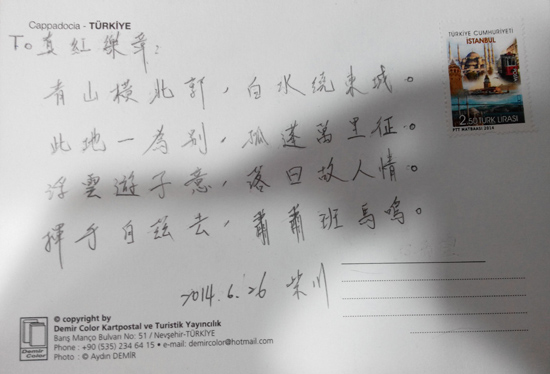 Cappadocia - TÜRKİYE
TÜRKİYE CUMHURİYETİ
İSTANBUL
2.50 TÜRK LİRASI
PTT MATBAASI 2014
To 真紅樂章：
青山橫北郭，白水绕東城。
此地一為別，孤蓬萬里征。
浮雲遊子意，落日故人情。
揮手自茲去，蕭蕭班馬鳴。
2014.6.26
© copyright by
Demir Color Kartpostal ve Turistik Yayıncılık
Barış Manço Bulvarı No: 51 / Nevşehir-TÜRKİYE
Phone : +90 (535) 234 64 15 • e-mail: demircolor@hotmail.com
Photo : © Aydın DEMİR
Demir Color